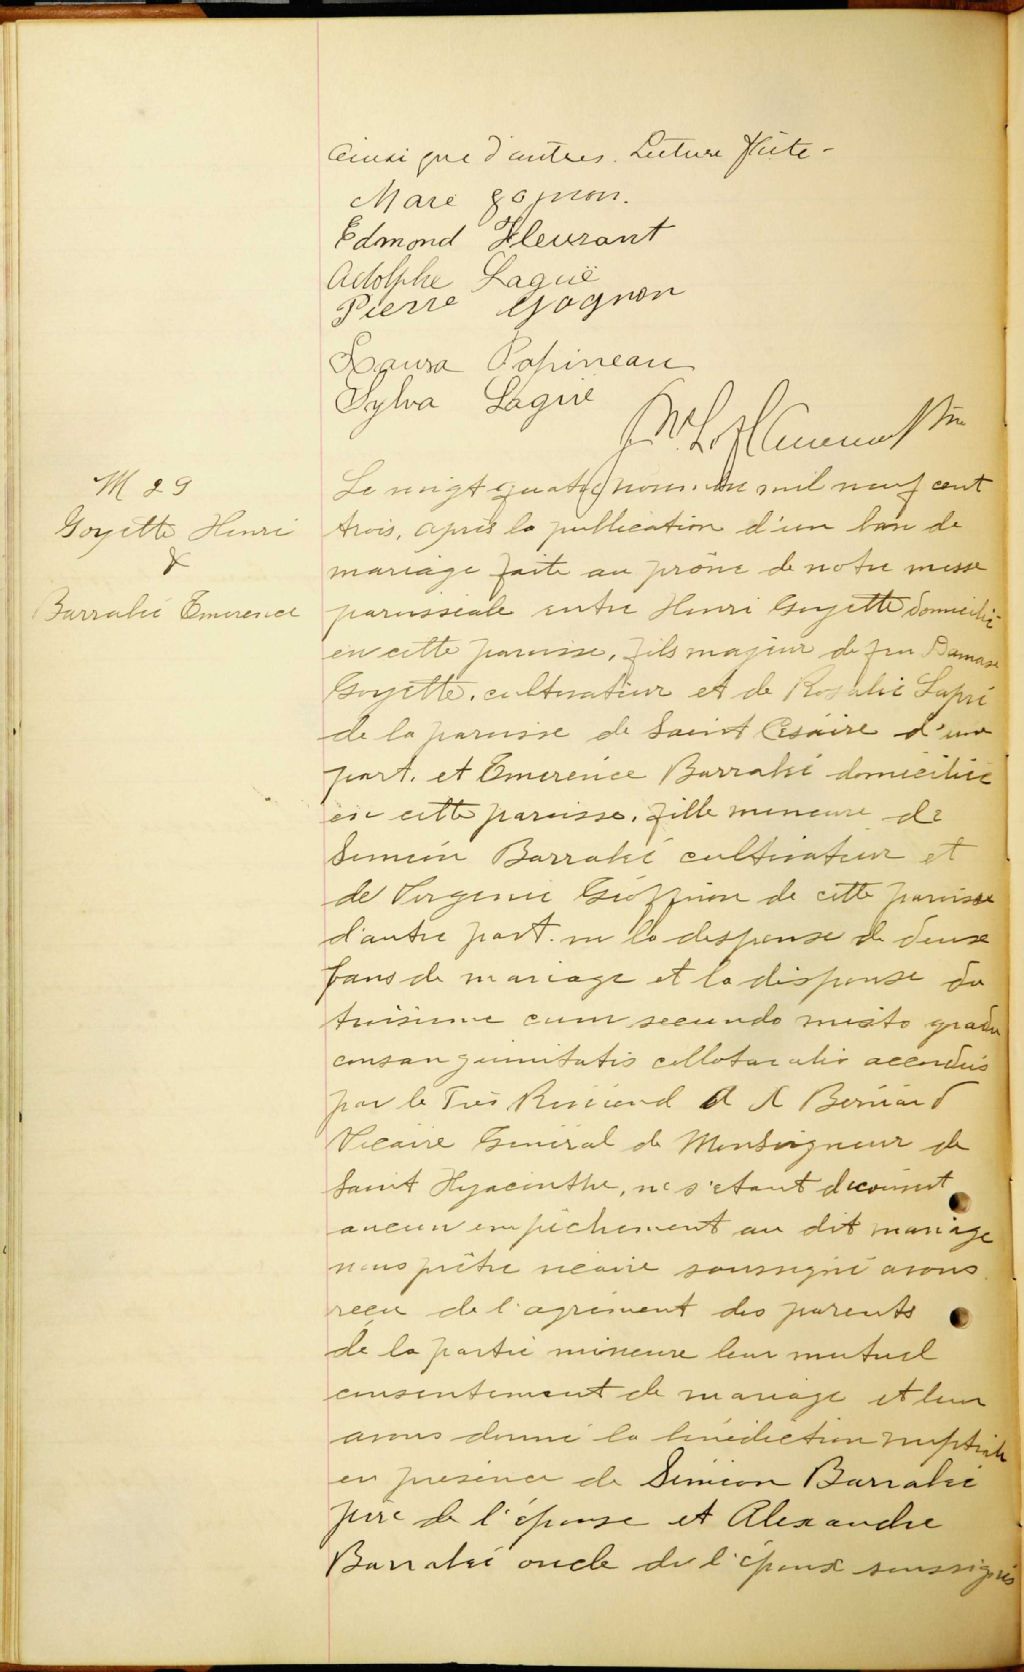 ainsi que d'autres. Lecture faite -
Marie Gagnon.
Edmond Fleurant
Adolphe Laguë
Pierre Gagnon
Laura Papineau
Sylva Laguë
Ptre
M 29
Goyette Henri
&
Barrabé Emerence
Le vingt quatre novembre mil neuf cent
trois, après la publication d'un ban de
mariage faite au prône de notre messe
paroissiale entre Henri Goyette domicilié
en cette paroisse, fils majeur de feu Damase
Goyette, cultivateur et de Rosalie
de la paroisse de Saint Césaire d'une
part, et Emerence Barrabé domiciliée
en cette paroisse, fille mineure de
Siméon Barrabé cultivateur et
de Virginie Geoffrion de cette paroisse
d'autre part. vu la dispense de deux
bans de mariage et la dispense du
troisième cum secundo mixto gradu
consanguinitatis collateralis accordés
par le Très Révérend A A Bernard
Vicaire Général de Monseigneur de
Saint Hyacinthe, ne s'étant découvert
aucun empêchement au dit mariage
nous prêtre vicaire soussigné avons
reçu de l'agrément des parents
de la partie mineure leur mutuel
consentement de mariage et leur
avons donné la bénédiction nuptiale
en présence de Siméon Barrabé
père de l'épouse et Alexandre
Barrabé oncle de l'époux soussignés